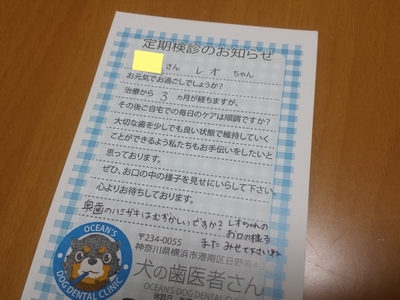 定期検診のお知らせ
さん レオ ちゃん
お元気でお過ごしでしょうか?
治療から 3 ヵ月が経ちますが、
その後ご自宅での毎日のケアは順調ですか?
大切な歯を少しでも良い状態で維持していく
ことができるよう私たちもお手伝いをしたいと
思っております。
ぜひ、お口の中の様子を見せにいらして下さい。
心よりお待ちしております。
奥歯のハミガキはむずかしいですか? レオちゃんの
お口の様子
また みせて下さいね
〒234-0055
神奈川県横浜市港南区日野南
犬の歯医者さん
OCEAN'S DOG DENTAL CLINIC
OCEAN'S
DOG DENTAL CLINIC